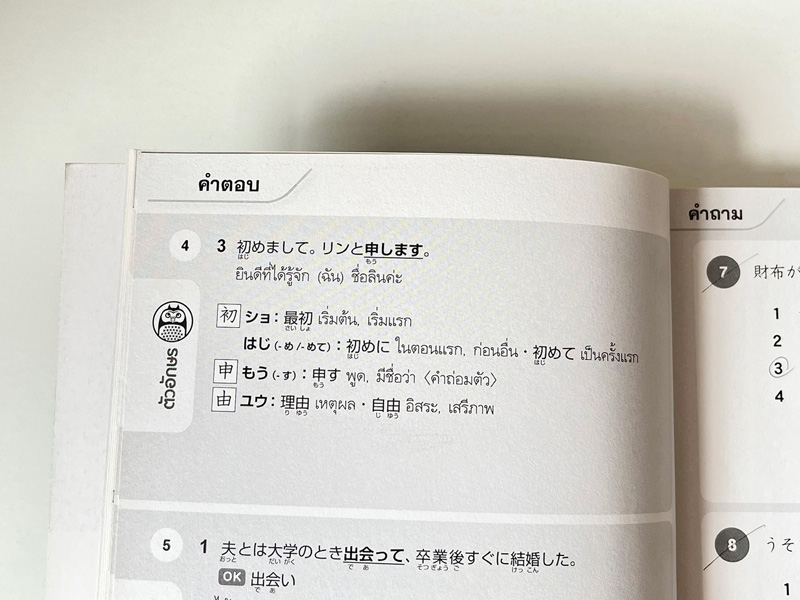 คำตอบ
4 3 初めまして。リンと申します。
はじ もう
ยินดีที่ได้รู้จัก (ฉัน) ชื่อลินค่ะ
ตัวอักษร
初 ショ：最初 เริ่มต้น, เริ่มแรก
さいしょ
はじ(-め/-めて)：初めに ในตอนแรก, ก่อนอื่น・初めて เป็นครั้งแรก
はじ はじ
申 もう(-す)：申す พูด, มีชื่อว่า〈คำถ่อมตัว〉
もう
由 ユウ：理由 เหตุผล・自由 อิสระ, เสรีภาพ
りゆう じゆう
5 1 夫とは大学のとき出会って、卒業後すぐに結婚した。
おっと だいがく であ そつぎょうご けっこん
OK 出会い
であ
คำถาม
7 財布が
1
2
3
4
8 うそ
1